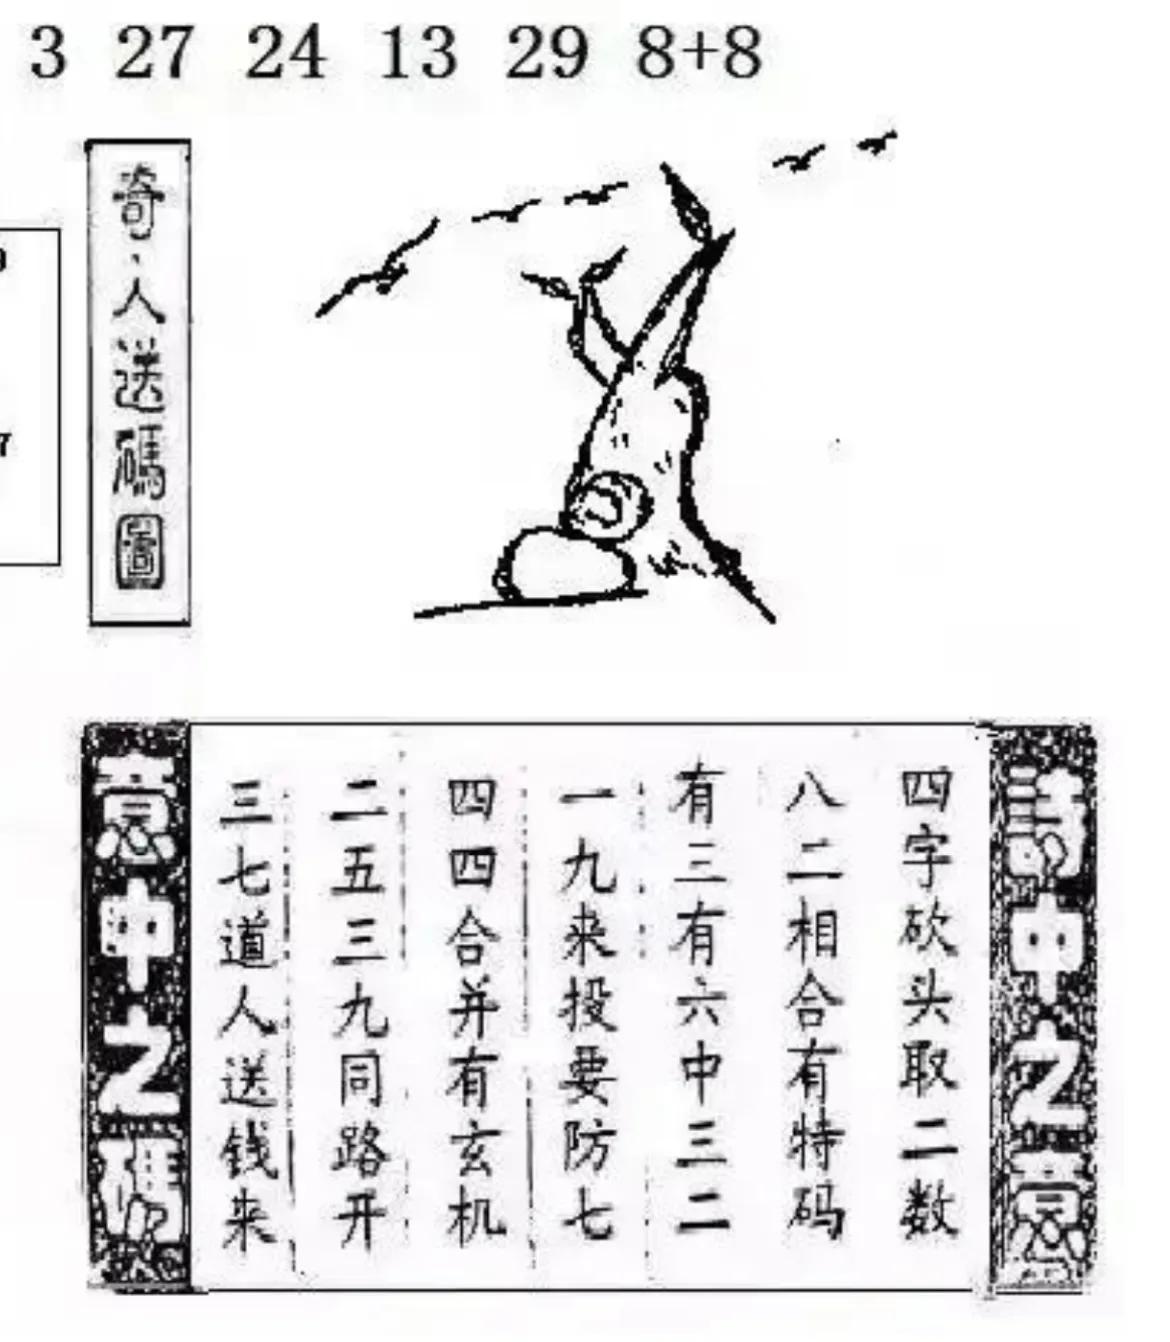 3 27 24 13 29 8+8
奇、人送碼圖
詩中之意
四字砍头取二数
八二相合有特码
有三有六中三二
一九来投要防七
四四合并有玄机
二五三九同路开
三七道人送钱来
意中之碼